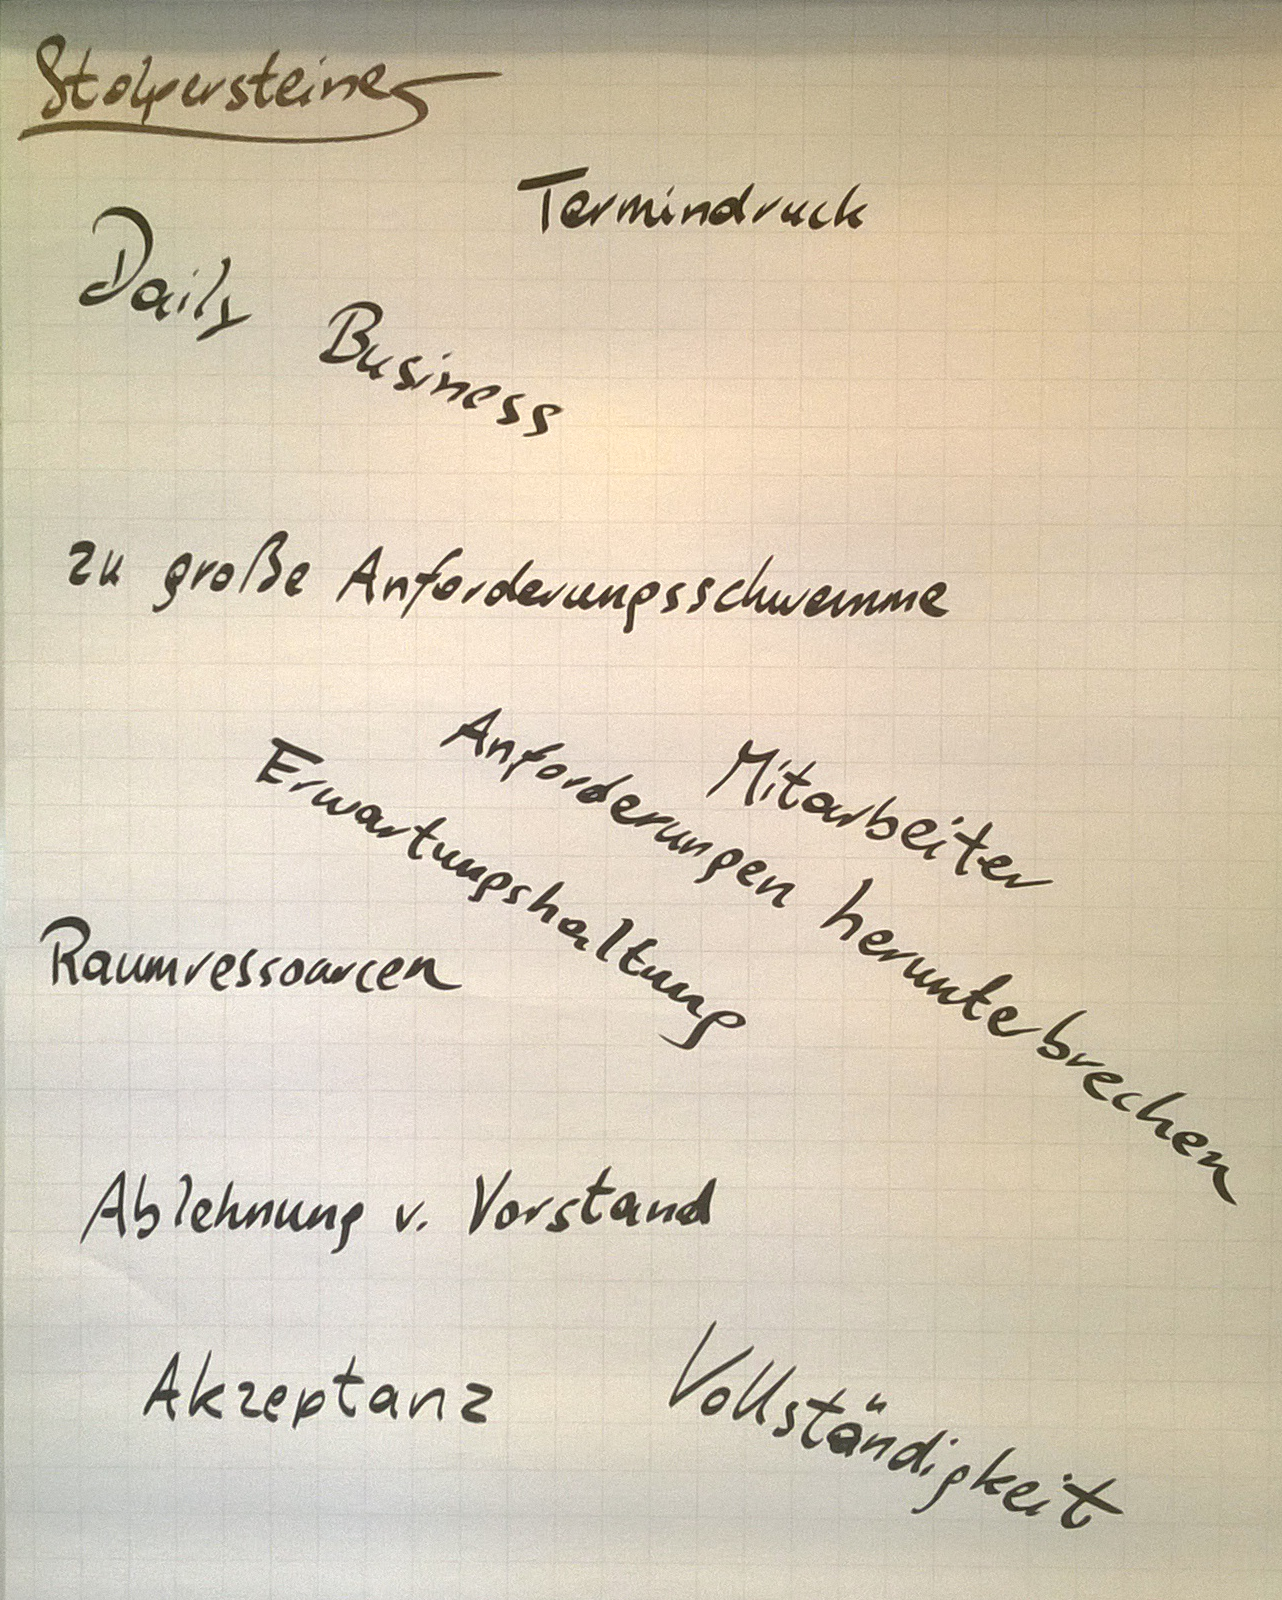 Stolpersteine
Termindruck
Daily Business
zu große Anforderungsschwemme
Mitarbeiter
Anforderungen herunterbrechen
Erwartungshaltung
Raumressourcen
Ablehnung v. Vorstand
Akzeptanz
Vollständigkeit